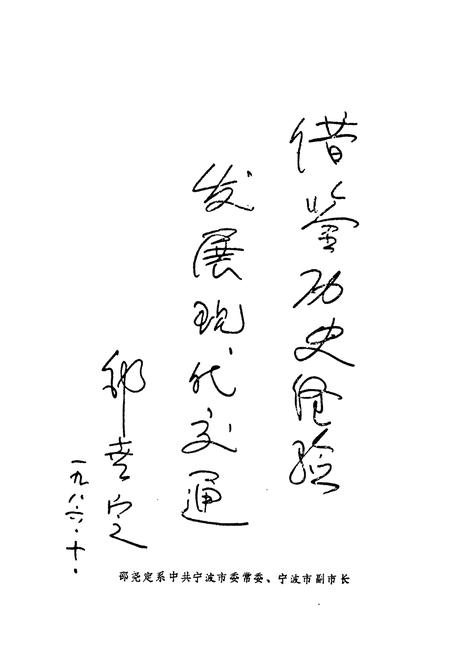 借鉴历史经验
发展现代交通
邵尧定
一九八六·十·
邵尧定系中共宁波市委常委、宁波市副市长